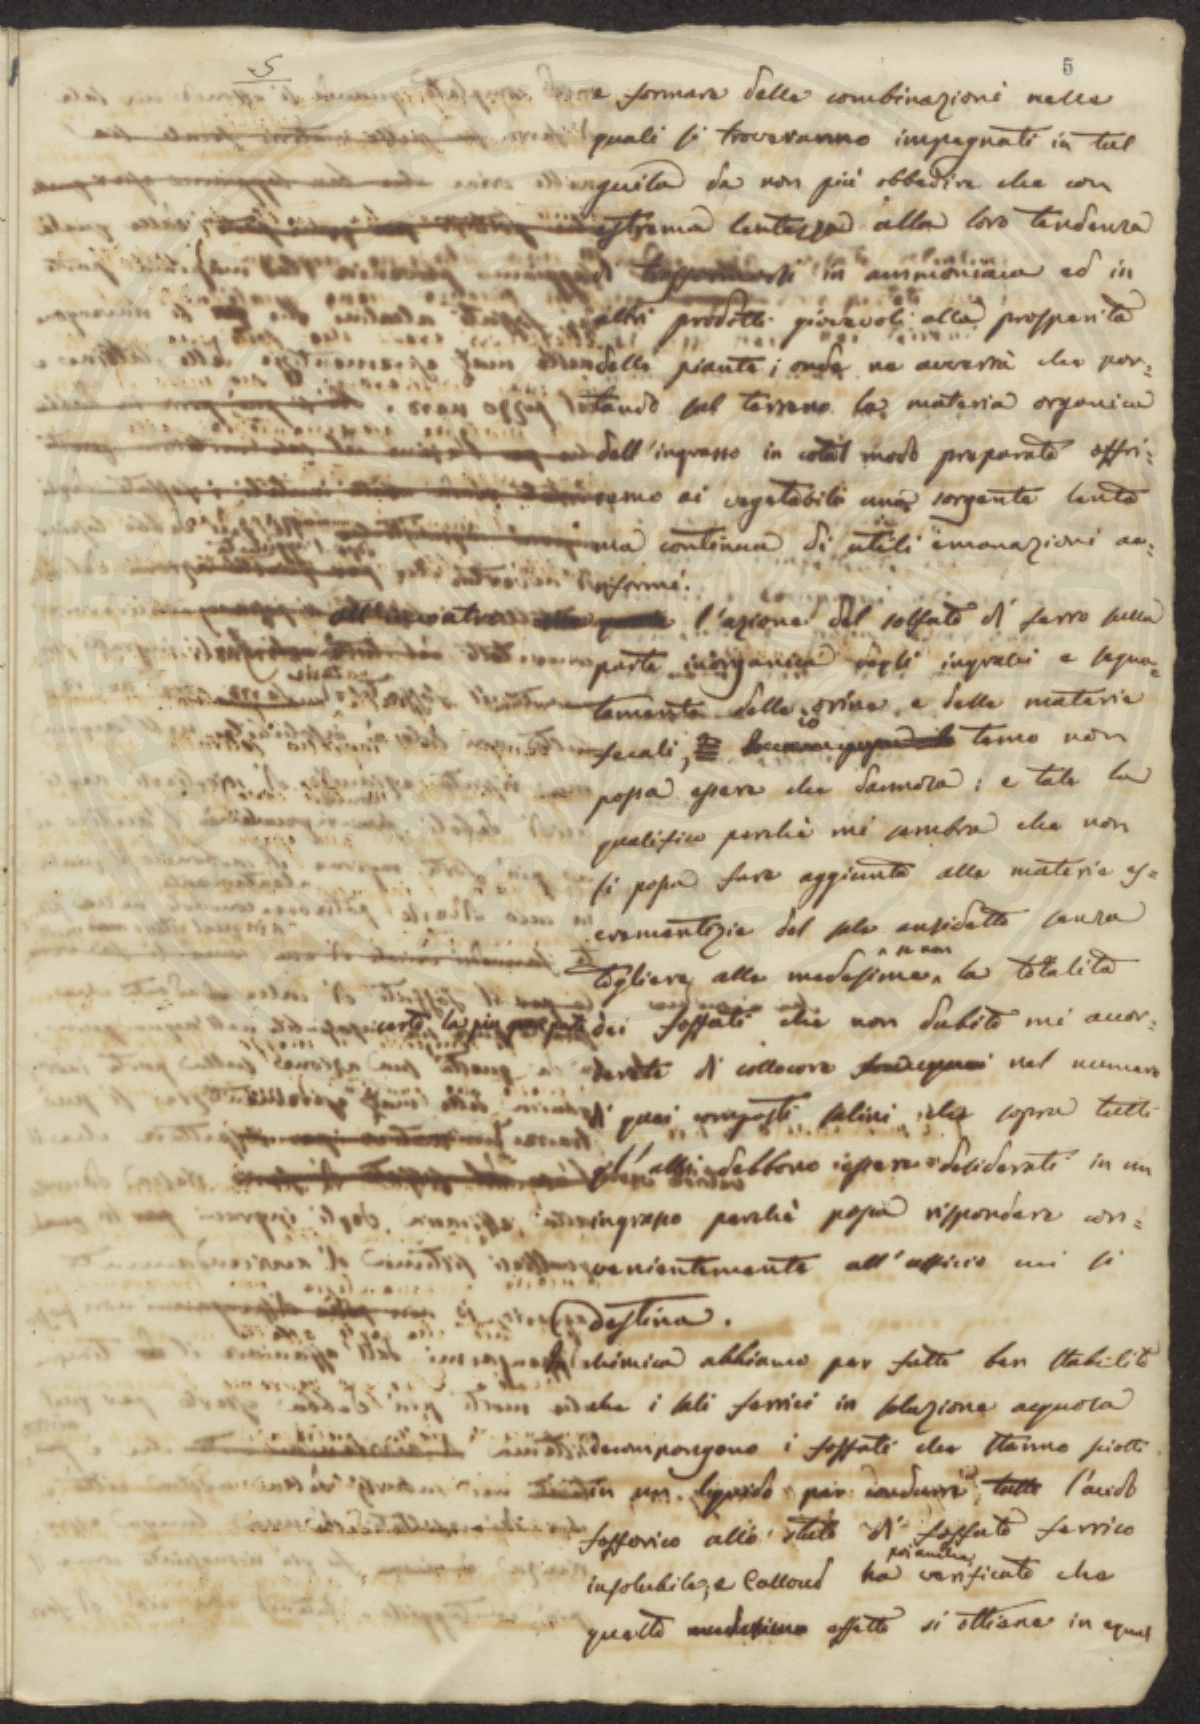 5
5
e formare delle combinazioni nelle
quali si troveranno impegnati in tal
guisa da non più obbedire che con
estrema lentezza alla loro tendenza
di trasformarsi in ammoniaca ed in
altri prodotti giovevoli alla prosperità
delle piante; onde ne avverrà che por=
tando sul terreno la materia organica
dell'ingrasso in cotal modo preparato offri=
remo ai vegetabili una sorgente lenta
ma continua di utili emanazioni ae=
riformi.
All'incontro l'azione del solfato di ferro sulla
parte inorganica degli ingrassi e segna=
tamente delle orine e delle materie
fecali, io temo non
possa essere che dannosa: e tale la
qualifico perchè mi sembra che non
si possa fare aggiunta alle materie es=
crementizie del sale anzidetto senza
togliere alle medesime, se non la totalità
certo la più gran parte dei fosfati che non dubito mi accor=
derete di collocare nel numero
di quei composti salini che sopra tutti
gl'altri debbono essere desiderati in un
ingrasso perchè possa rispondere con=
venientemente all'officio cui si
destina.
In chimica abbiamo per fatto ben stabilito
che i sali ferrici in soluzione acquosa
decompongono i fosfati che stanno sciolti
in un liquido per condurre tutto l'acido
fosforico allo stato di fosfato ferrico
insolubile, e Calloud ha poi anche verificato che
questo medesimo effetto si ottiene in egual